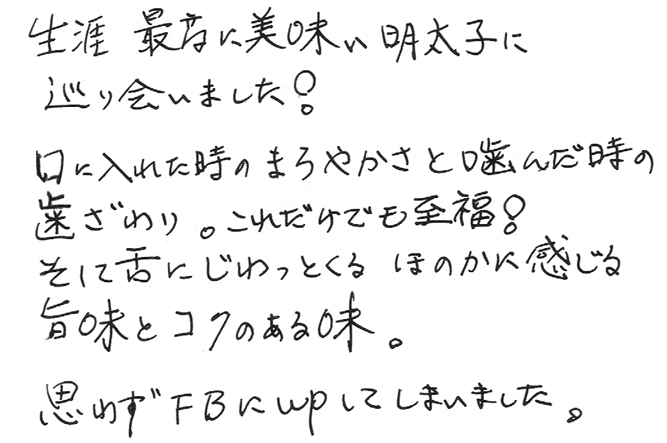 生涯 最高に美味い明太子に
巡り会いました!
口に入れた時のまろやかさと噛んだ時の
歯ざわり。これだけでも至福!
そして舌にじわっとくる ほのかに感じる
旨味とコクのある味。
思わずFBにupしてしまいました。